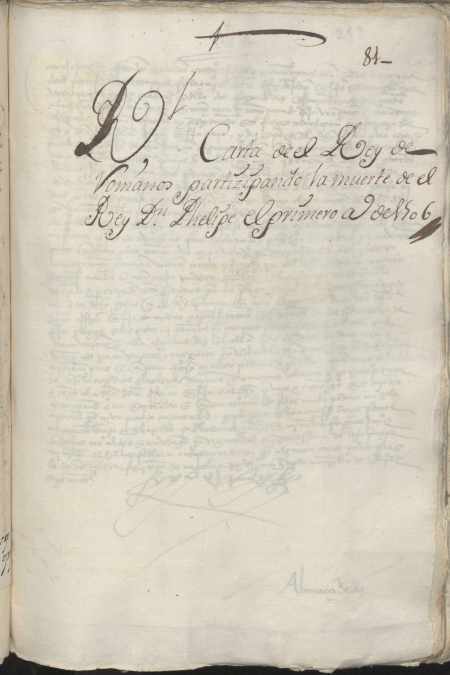 84
Rl Carta de el Rey de
Romanos partizipando la muerte de el
Rey Dn. Phelipe el primero aº de 1506